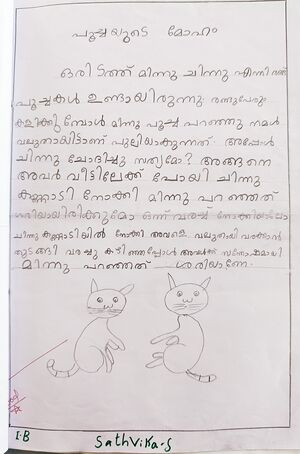 പൂച്ചയുടെ മോഹം
ഒരിടത്ത് മിന്നു ചിന്നു എന്നീ രണ്ട്
പൂച്ചകൾ ഉണ്ടായിരുന്നു. രണ്ടുപേരും
കളിക്കുമ്പോൾ മിന്നു പൂച്ച പറഞ്ഞു നമൾ
വലുതായിട്ടാണ് പുലിയാകുന്നത്. അപ്പോൾ
ചിന്നു ചോദിച്ചു സത്യമോ? അങ്ങനെ
അവർ വീട്ടിലേക്ക് പോയി ചിന്നു
കണ്ണാടി നോക്കി മിന്നു പറഞ്ഞത്
ശരിയായിരിക്കുമോ ഒന്ന് വരച്ച് നോക്കിയാലോ
ചിന്നു കണ്ണാടിയിൽ നോക്കി അവളെ വലുതായി വരക്കാൻ
തുടങ്ങി വരച്ചു കഴിഞ്ഞപ്പോൾ അവൾക്ക് സന്തോഷമായി
മിന്നു പറഞ്ഞത് ശരിയാണേ.
I.B
Sathvika.S